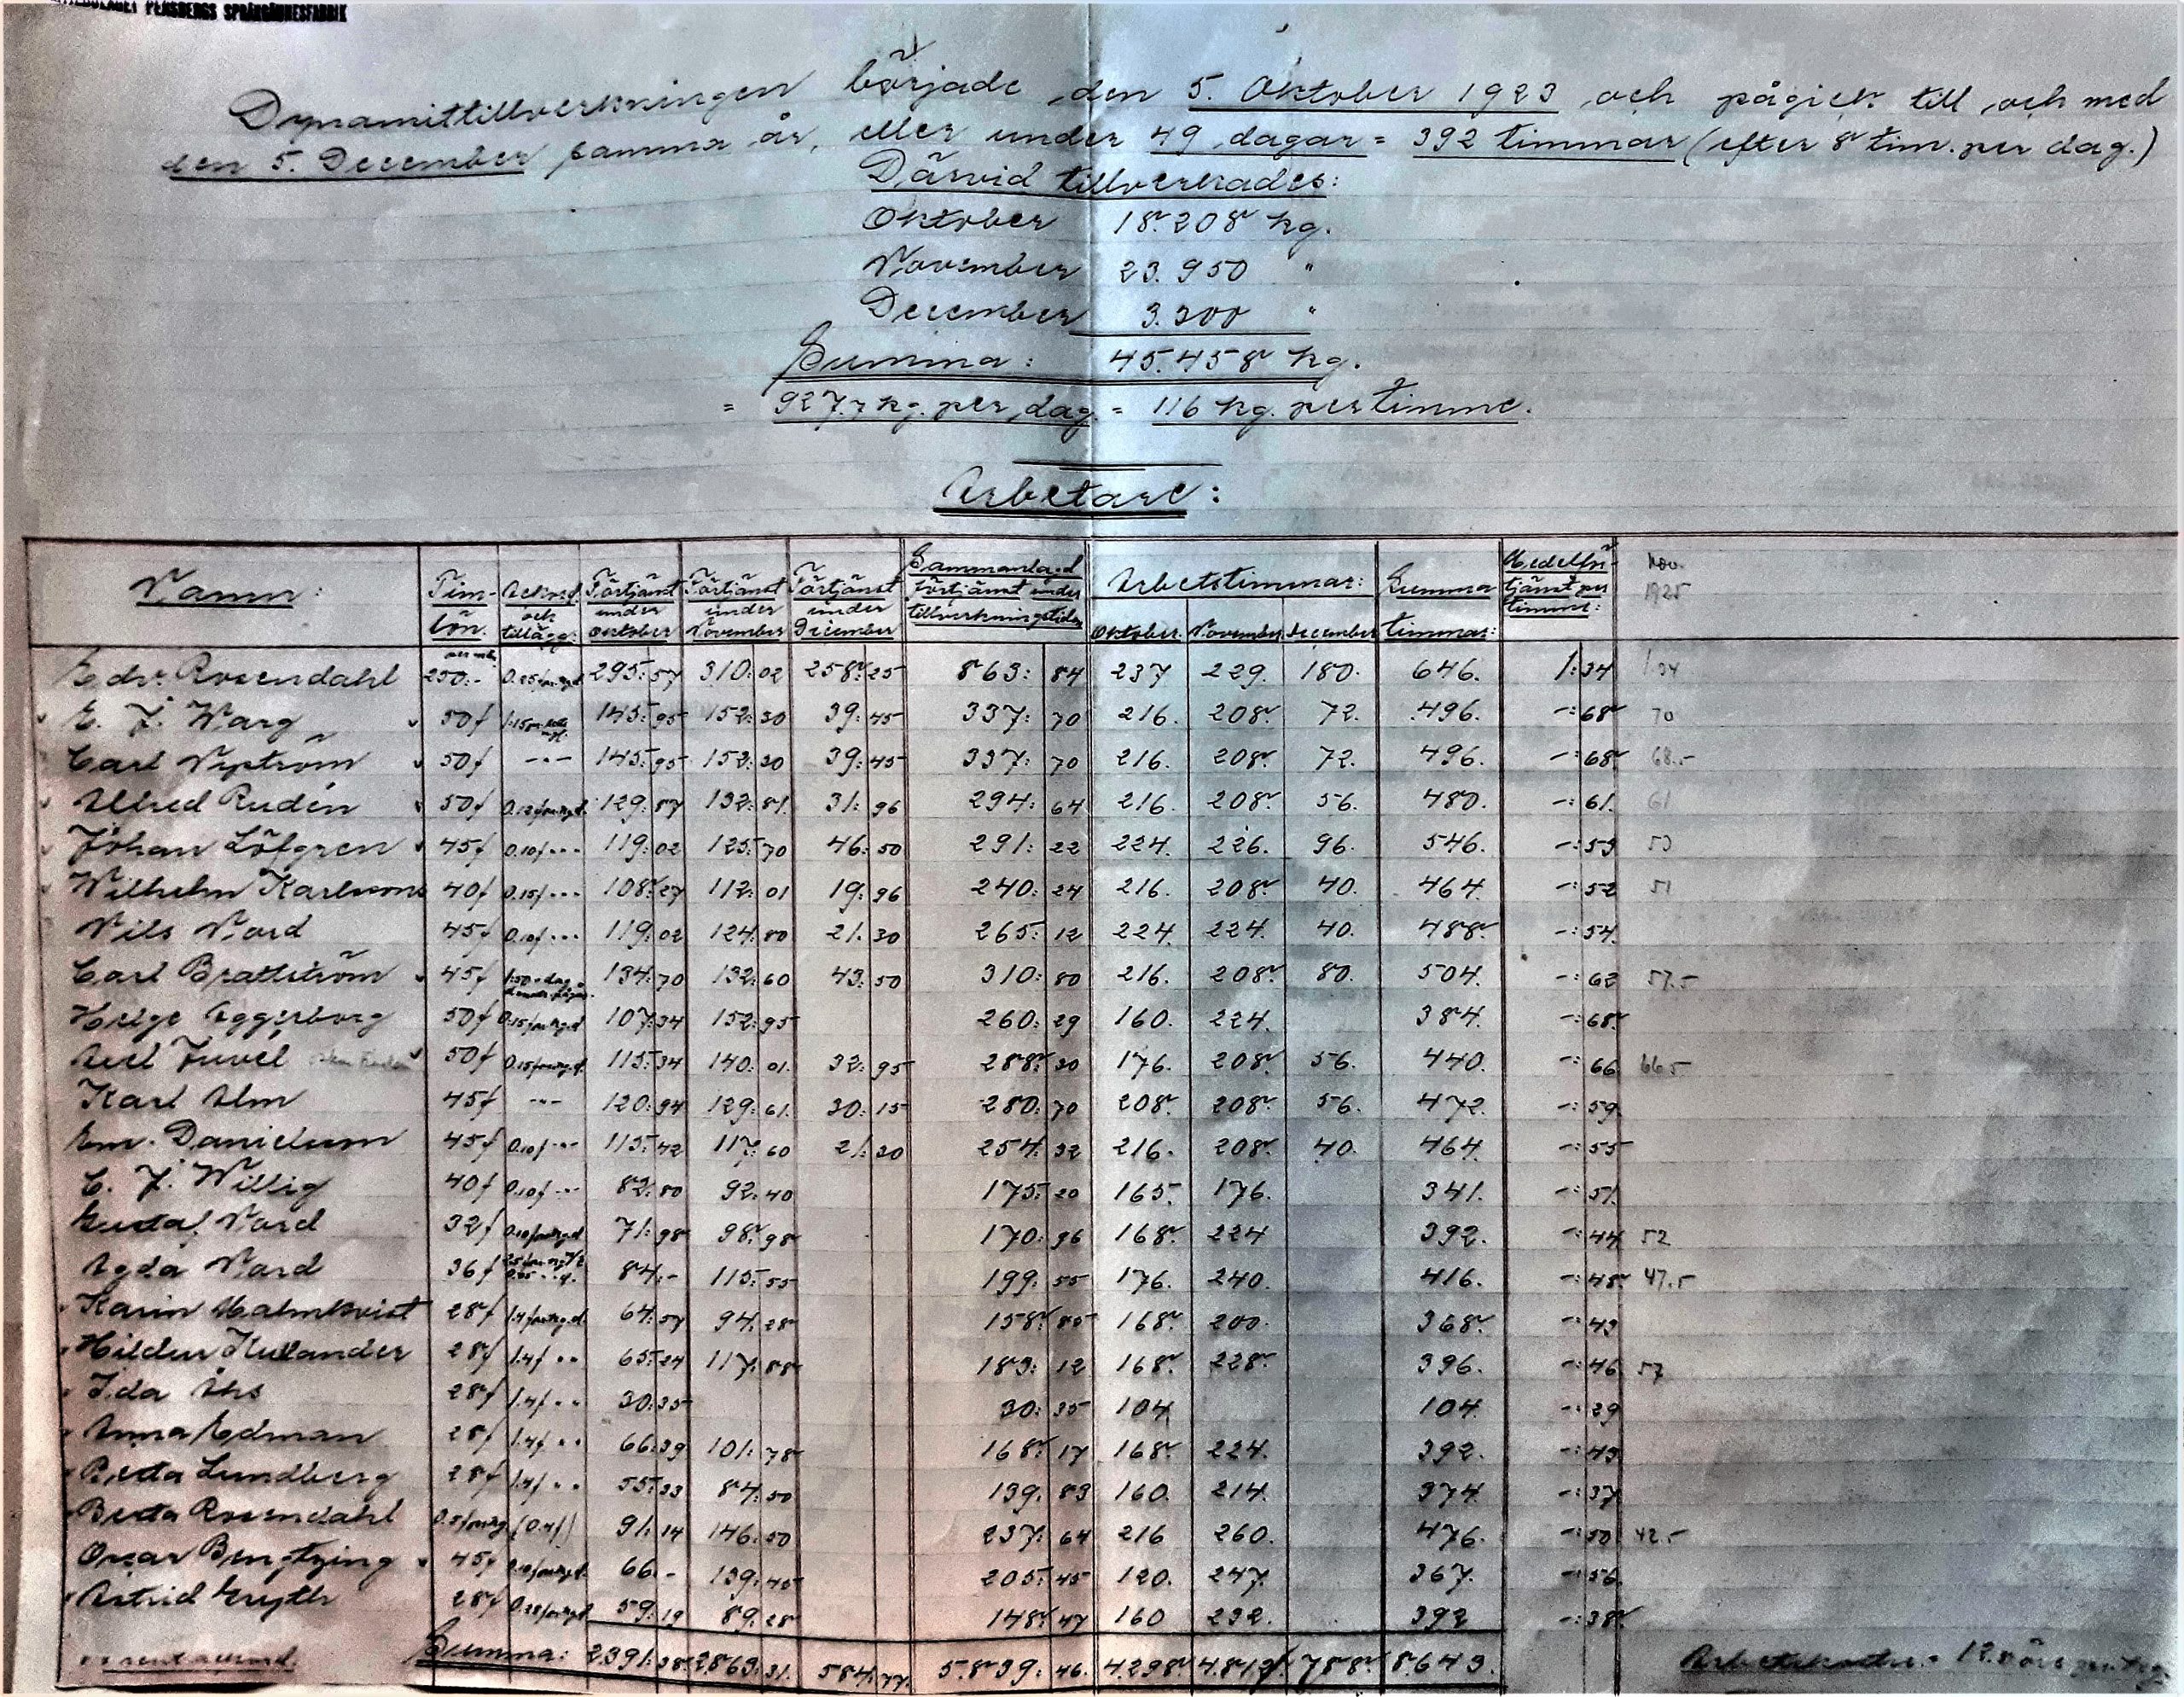 PERSBERGS SPRÄNGÄMNESFABRIK
Dynamittillverkningen började den 5. Oktober 1923 och pågick till och med
den 5. December samma år, eller under 49 dagar = 392 timmar (efter 8 tim. per dag.)
Därvid tillverkades:
Oktober 18.208 kg.
November 23.950 "
December 3.300 "
Summa: 45.458 kg.
= 927,7 kg. per dag. = 116 kg. per timme.
Arbetare:
Namn: Tim-lön. Ackord och tillägg: Förtjänst under Oktober Förtjänst under November Förtjänst under December Sammanlagd förtjänst under tillverkningstiden Arbetstimmar: Oktober. November. December Summa timmar: Medelför-tjänst per timme: Nov. 1925
Edv. Rosendahl 250.- 295:57 310:02 258:25 863:84 237 229. 180. 646. 1:34 1.34
E. J. Warg 50 f 145:95 152:30 39:45 337:70 216. 208. 72. 496. -:68 70
Carl Nyström 50 f -"- 145:95 152:30 39:45 337:70 216. 208. 72. 496. -:68 68.5
Alfred Rudén 50 f 129:87 132:81 31:96 294:64 216. 208. 56. 480. -:61. 61
Johan Löfgren 45 f 0.10 f 119:02 125:70 46:50 291:22 224. 226. 96. 546. -:53 53
Wilhelm Karlsson 40 f 0.15 f 108:27 112:01 19:96 240:24 216. 208. 40. 464. -:52 51
Nils Nord 45 f 0.10 f 119:02 124:80 21:30 265:12 224. 224. 40. 488. -:54.
Carl Brattström 45 f 134:70 132:60 43:50 310:80 216. 208. 80. 504. -:62 57.5
Helge Eggerborg 50 f 107:34 152:95 260:29 160. 224. 384. -:68.
Axel Juvél 50 f 115:34 140:01. 32:95 288:30 176. 208. 56. 440. -:66 66.5
Karl Alm 45 f -"- 120:94 129:61. 30:15 280:70 208. 208. 56. 472. -:59.
Em. Danielsson 45 f 0.10 f 115:42 117:60 21:30 254:32 216. 208. 40. 464. -:55
C. J. Willig 40 f 0.10 f 82:80 92:40 175:20 165. 176. 341. -:51.
Gustaf Nord 32 f 71:98 98:98 170:96 168. 224 392. -:44 52
Agda Nord 36 f 84.- 115:55 199:55 176. 240. 416. -:48 47.5
Karin Malmkvist 28 f 64:57 94:28 158:85 168. 200. 368. -:43
Hildur Kullander 28 f 1.4 f " " 65:24 117:88 183:12 168. 228. 396. -:46 57
Ida Ahs 28 f 1.4 f " " 30:35 30:35 104 104 -:29
Anna Edman 28 f 1.4 f " " 66:39 101:78 168:17 168. 224. 392. -:43
Berta Lundberg 28 f 1.4 f " " 55:33 84:50 139:83 160. 214. 374. -:37
Berta Rosendahl (0.4 f) 91:14 146:50 237:64 216 260. 476. -:50 42.5
Oscar Bengtzing 45 f 66.- 139:45 205:45 120. 247. 367. -:56.
Astrid Gryth 28 f 59:19 89:28 148:47 160 232. 392 -:38
Summa: 2391:38. 2863:31. 584:77. 5.839:46. 4.298. 788. 8.643.